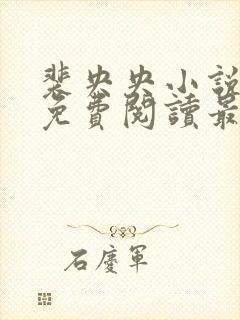 裴央央小說
免費閱讀最
石慶軍